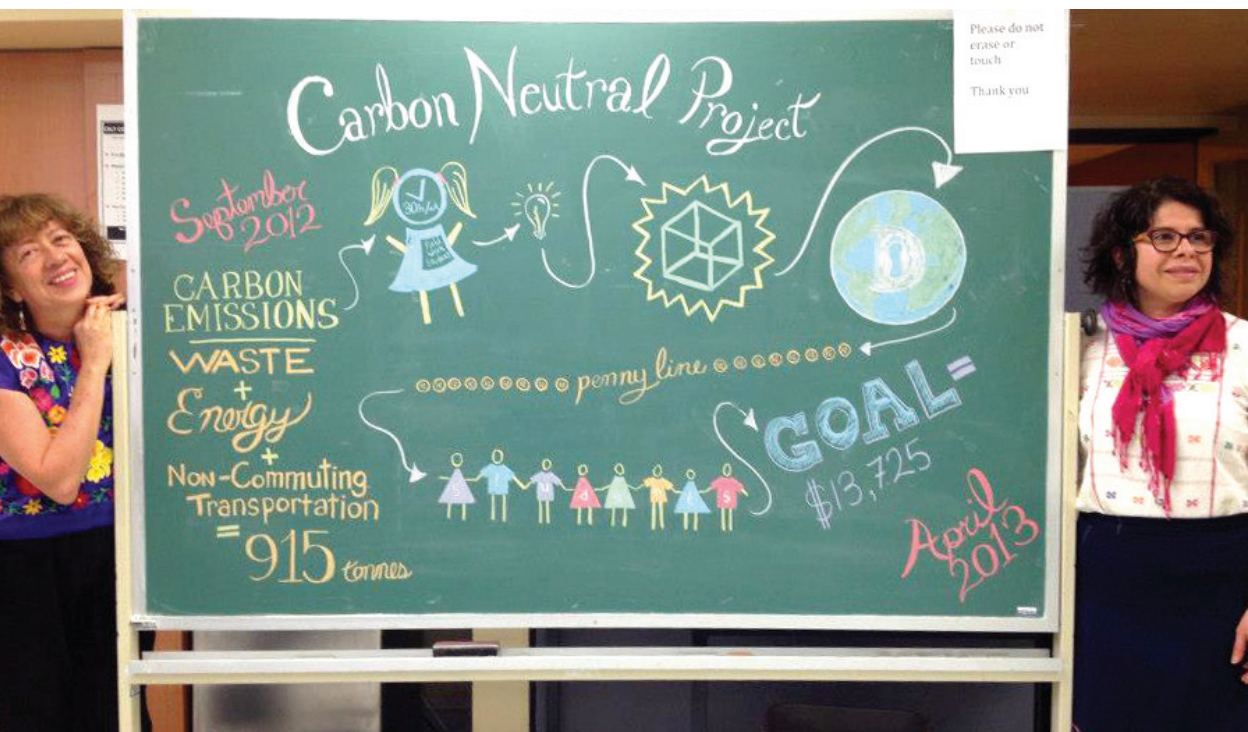 Please do not
erase or
touch
Thank you
Carbon Neutral Project
September
2012
CARBON
EMISSIONS
WASTE
+
Energy
+
Non-Commuting
Transportation
=
915 tonnes
penny line
GOAL=
$13,725
April
2013